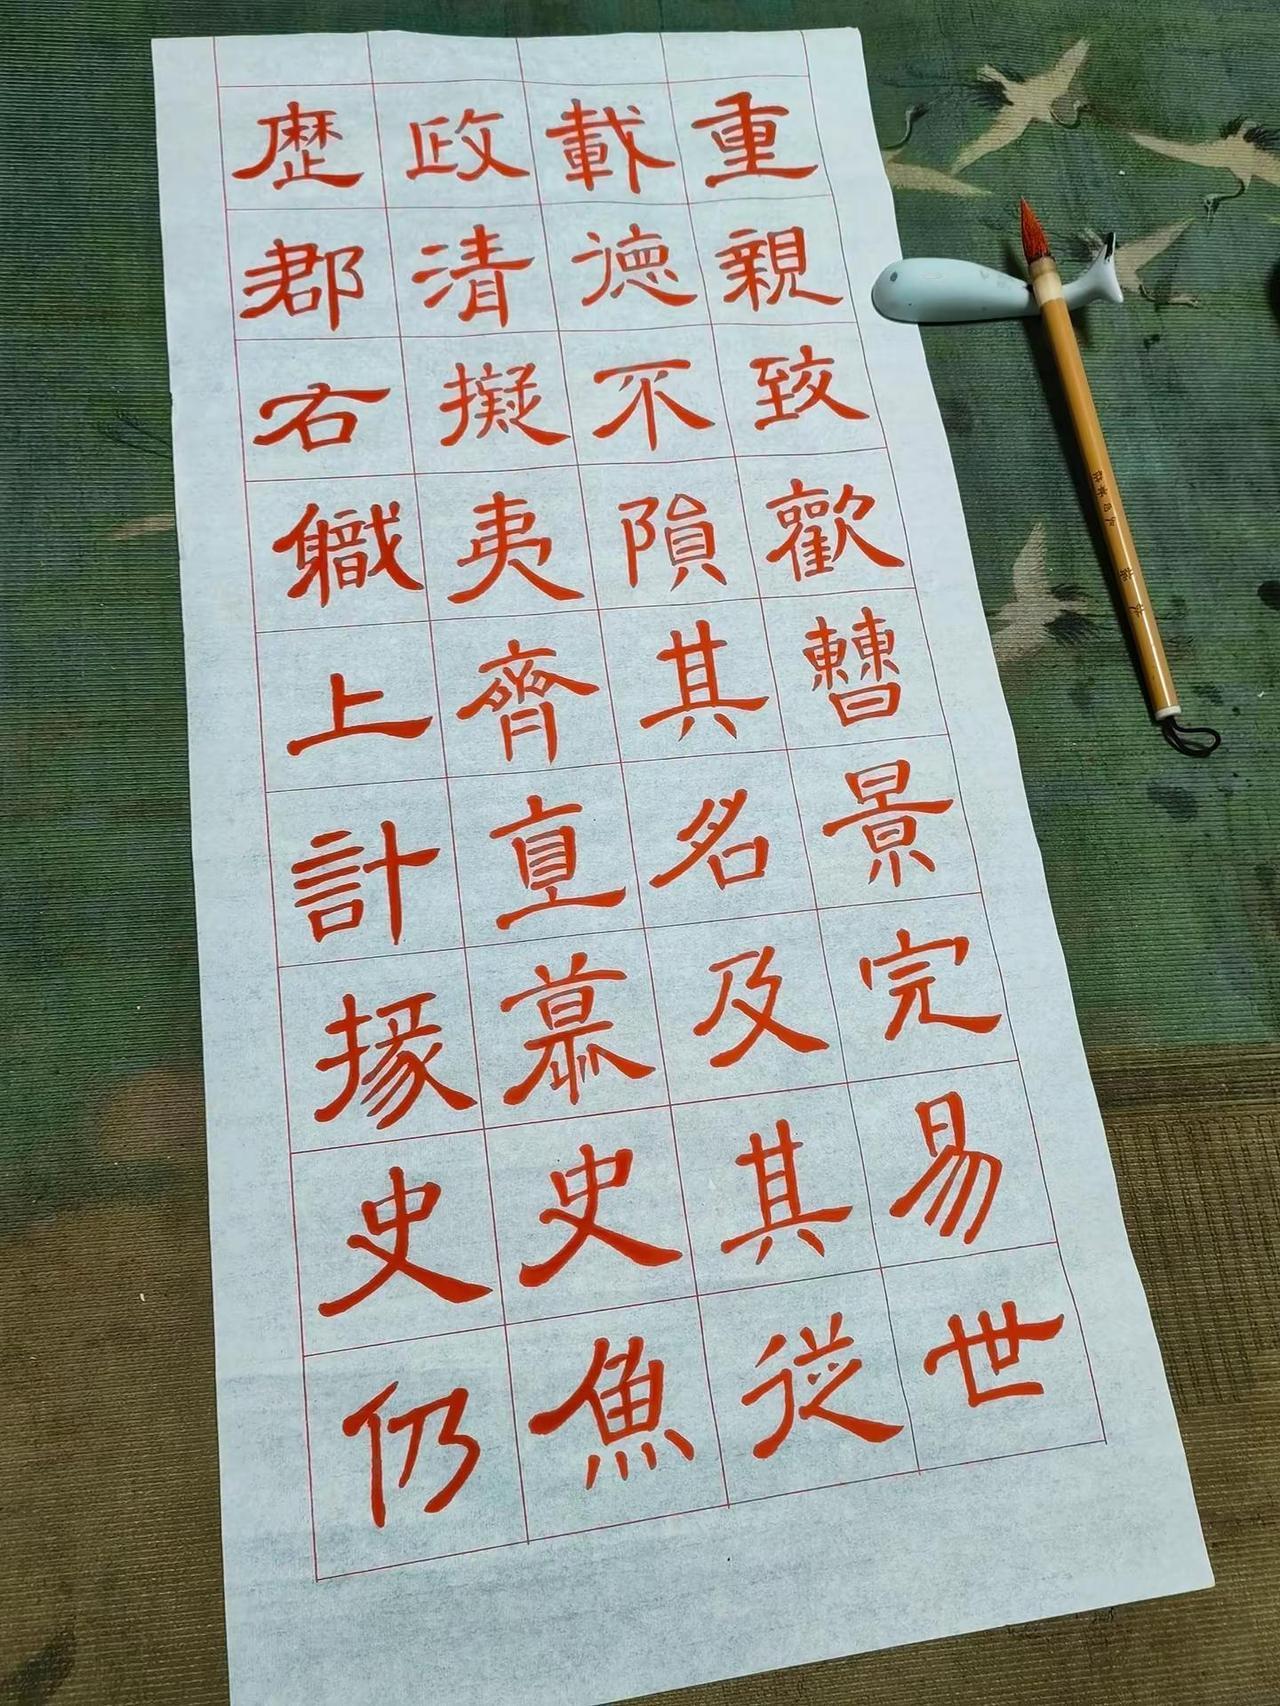 重親致歡曹景完易世
載德不隕其名及其從
政清擬夷齊直慕史魚
歷郡右職上計掾史仍